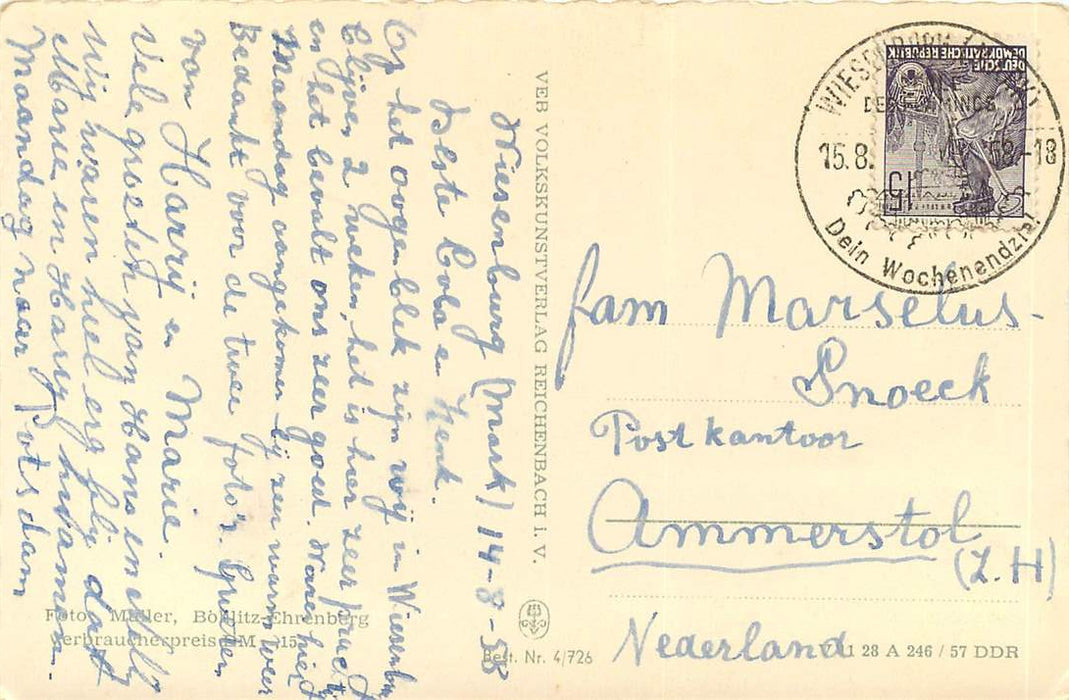 Wiesenburg (Mark) 14-8-58
Beste Coba en Henk.
Op het oogenblik zijn wij in Wiesenburg
blijven 2 weken, het is hier zeer pracht
en het bevalt ons zeer goed. Waren hier
Maandag aangekomen bij zeer warm weer
Bedankt voor de twee foto's. Groeten
van Harrij en Marie.
Vele groeten van Hans en Elly
Wij waren heel erg blij dat
Marie en Harry kwamen.
Maandag naar Potsdam
Foto: Müller, Böhlitz-Ehrenberg
Verbraucherpreis DM 15
VEB VOLKSKUNSTVERLAG REICHENBACH i. V.
Best. Nr. 4/726
DEUTSCHE
DEMOKRATISCHE REPUBLIK
15
15.8. 58-18
Dein Wochenendziel
fam Marselus-
Snoeck
Postkantoor
Ammerstol
(Z.H)
Nederland
28 A 246 / 57 DDR